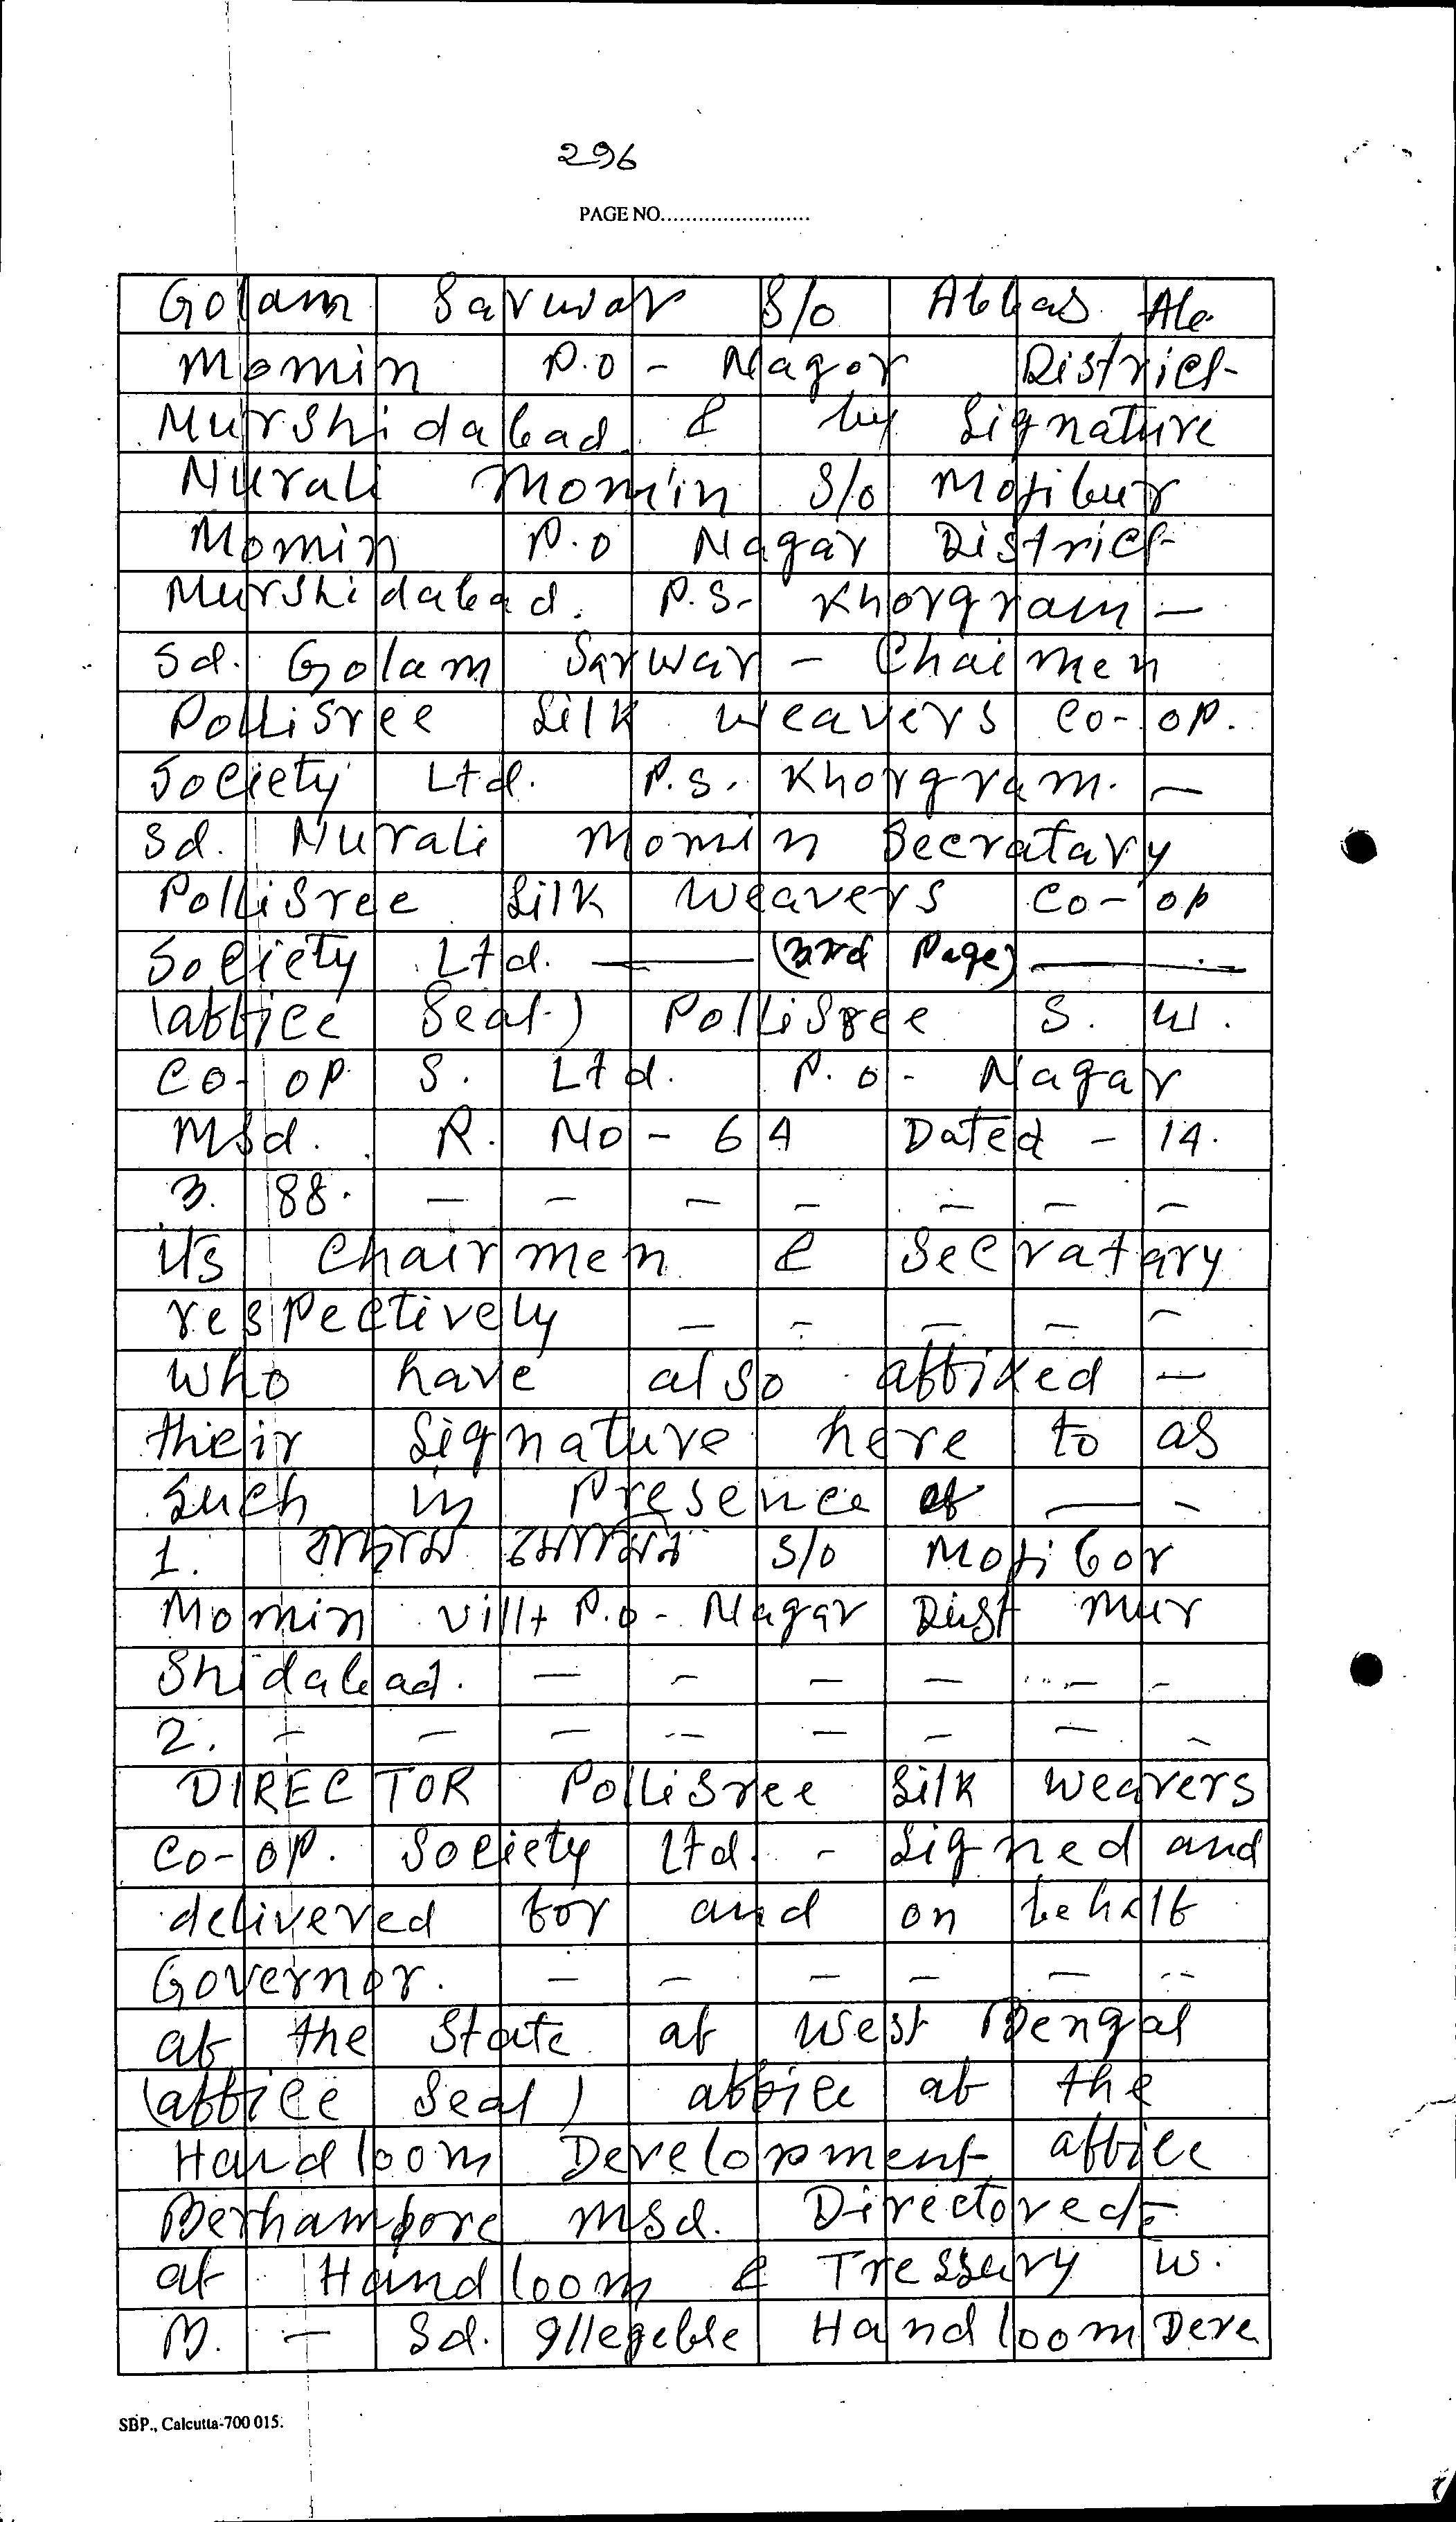 296
PAGE NO.........................
Golam Sarwar S/o Abbas Ale
Momin P.O - Nagor District
Murshidabad & by Signature
Nurali Momin S/o Mojibur
Momin P.O Nagar District
Murshidabad. P.S- Khorgram —
Sd. Golam Sarwar - Chaimen
Pollisree Silk weavers Co-op.
Society Ltd. P.S. Khorgram. —
Sd. Nurali Momin Secratary
Pollisree Silk Weavers Co-op
Society Ltd. —— (3rd Page) ——
(office Seal) Pollisree S. W.
Co-op S. Ltd. P.o- Nagar
Msd. R. No - 64 Dated - 14.
3. 88. — — — — — — —
its Chairmen & Secratary
respectively — — — — —
Who have also affixed —
their Signature here to as
Such in Presence of — -
1. বাহারুল মোমিন S/o Mojibor
Momin Vill+ P.o- Nagar Dist Mur
Shidabad. — — — — — —
2. — — — — — — — —
DIRECTOR Pollisree Silk Weavers
Co-op. Society Ltd. - Signed and
delivered for and on behalf
Governor. — — — — — —
of the State of West Bengal
(office Seal) office of the
Handloom Development office
Berhampore Msd. Directored-
of Handloom & Tressury W.
B. — Sd. Illegeble Handloom Deve
SBP., Calcutta-700 015.